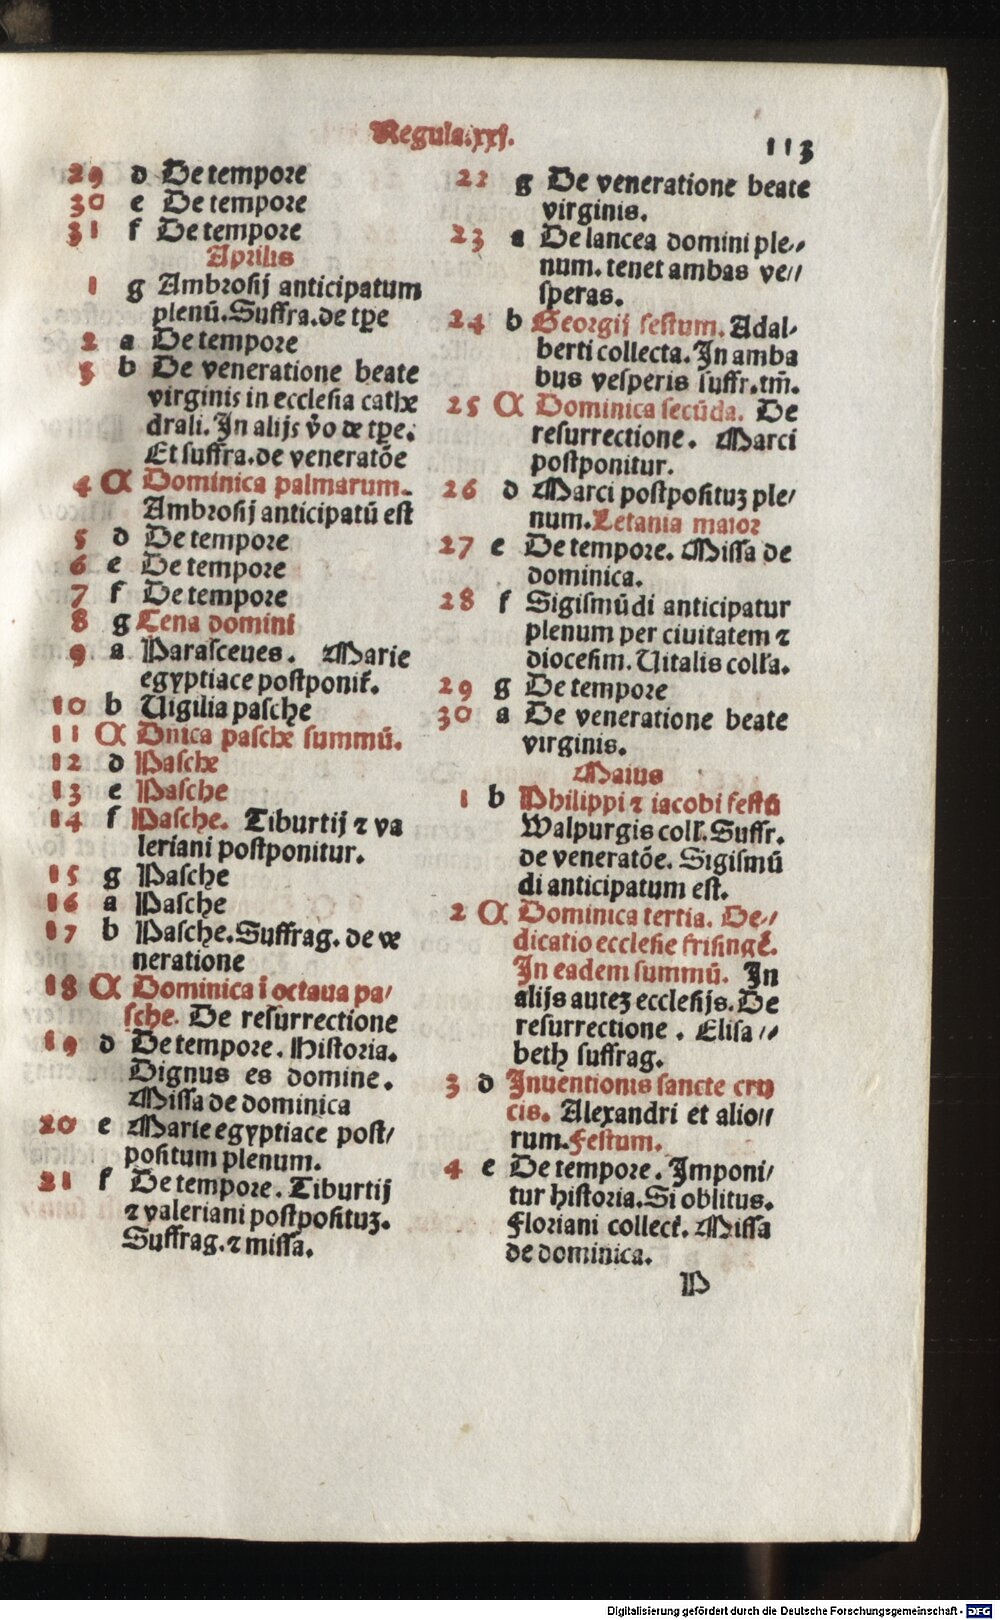 Regula.xxj.
113
29 d De tempore
30 e De tempore
31 f De tempore
Aprilis
1 g Ambrosij anticipatum
plenū. Suffra. de tꝑe
2 a De tempore
3 b De veneratione beate
virginis in ecclesia cathe
drali. In alijs v̊o de tꝑe.
Et suffra. de veneratōe
4 A Dominica palmarum.
Ambrosij anticipatū est
5 d De tempore
6 e De tempore
7 f De tempore
8 g Cena domini
9 a Parasceues. Marie
egyptiace postponit̄.
10 b Uigilia pasche
11 A Dnica pasche summū.
12 d Pasche
13 e Pasche
14 f Pasche. Tiburtij ⁊ va
leriani postponitur.
15 g Pasche
16 a Pasche
17 b Pasche. Suffrag. de ve
neratione
18 A Dominica i octaua pa/
sche. De resurrectione
19 d De tempore. Historia.
Dignus es domine.
Missa de dominica
20 e Marie egyptiace post/
positum plenum.
21 f De tempore. Tiburtij
⁊ valeriani postposituꝫ.
Suffrag. ⁊ missa.
22 g De veneratione beate
virginis.
23 a De lancea domini ple//
num. tenet ambas ve//
speras.
24 b Georgij festum. Adal/
berti collecta. In amba
bus vesperis suffr. tm̄.
25 A Dominica secūda. De
resurrectione. Marci
postponitur.
26 d Marci postposituꝫ ple/
num. Letania maior
27 e De tempore. Missa de
dominica.
28 f Sigismūdi anticipatur
plenum per ciuitatem ⁊
diocesim. Uitalis coll'a.
29 g De tempore
30 a De veneratione beate
virginis.
Maius
1 b Philippi ⁊ iacobi festū
Walpurgis coll'. Suffr.
de veneratōe. Sigismū
di anticipatum est.
2 A Dominica tertia. De//
dicatio ecclesie frisingē.
In eadem summū. In
alijs auteꝫ ecclesijs. De
resurrectione. Elisa//
beth suffrag.
3 d Inuentionis sancte cru
cis. Alexandri et alio//
rum. Festum.
4 e De tempore. Imponi/
tur historia. Si oblitus.
Floriani collect̄. Missa
de dominica.
P
Digitalisierung gefördert durch die Deutsche Forschungsgemeinschaft - DFG